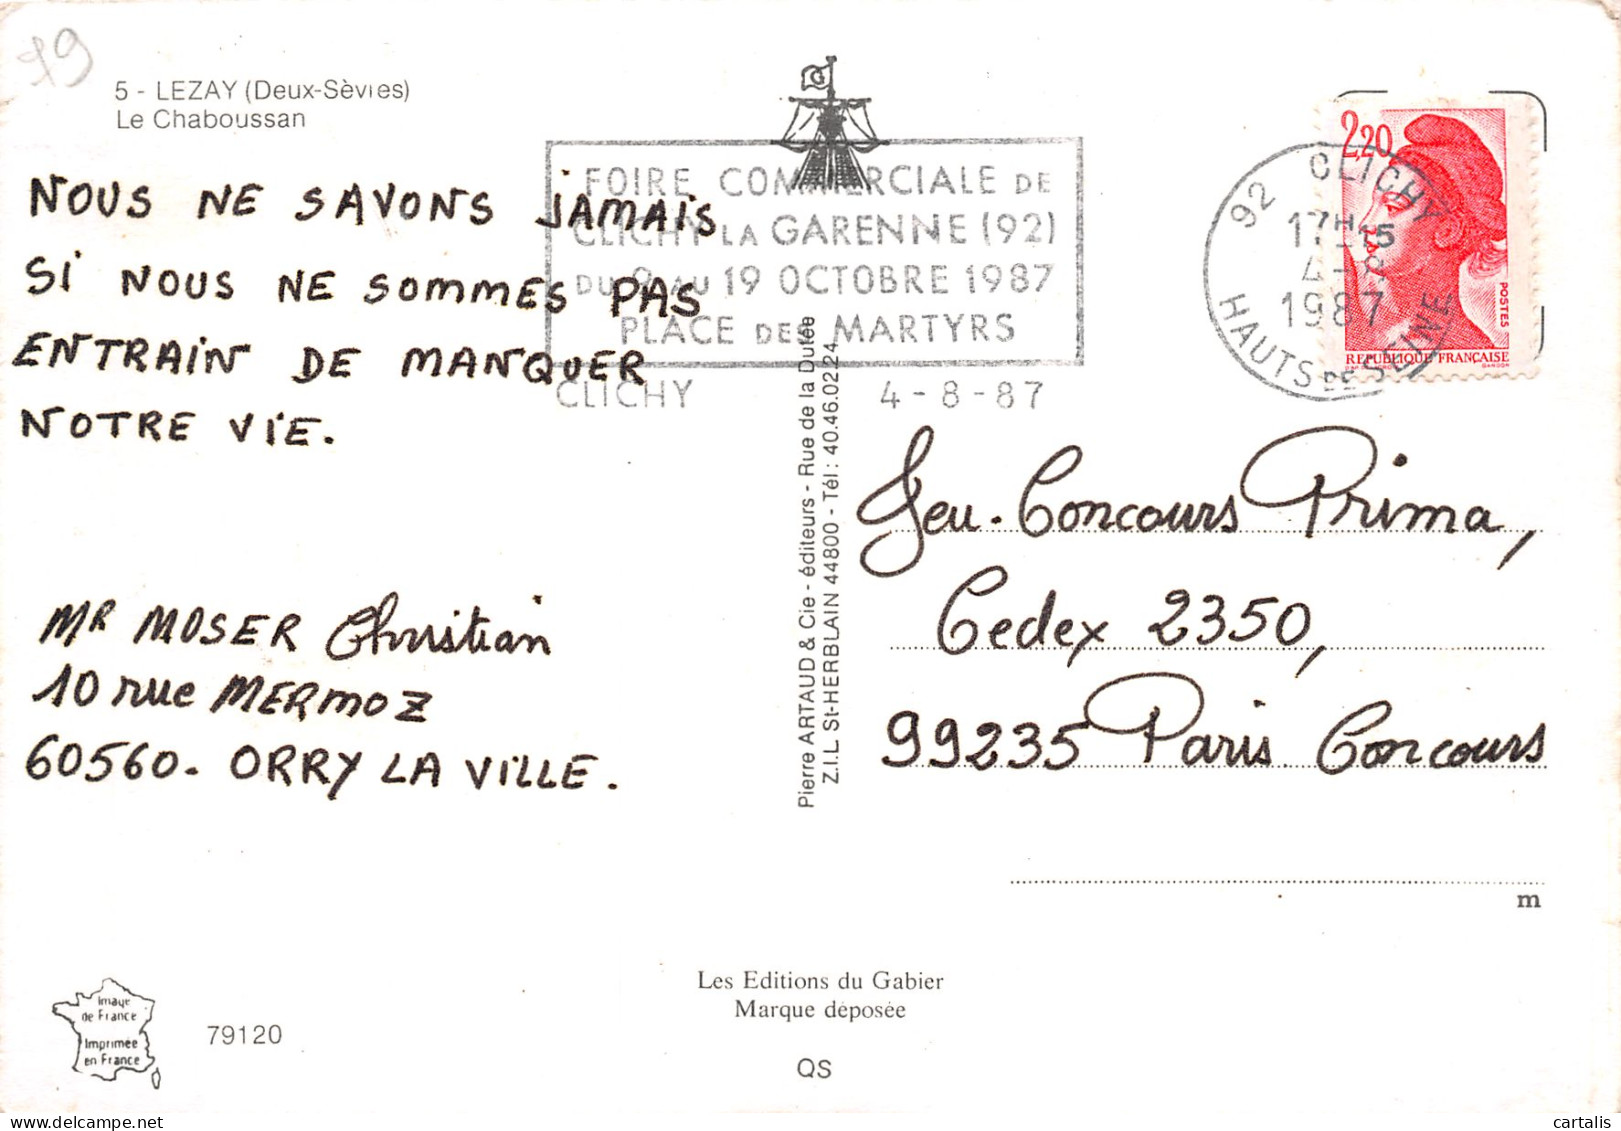 79
5 - LEZAY (Deux-Sèvres)
Le Chaboussan
NOUS NE SAVONS JAMAIS
SI NOUS NE SOMMES PAS
ENTRAIN DE MANQUER
NOTRE VIE.
MR MOSER Christian
10 rue MERMOZ
60560. ORRY LA VILLE.
FOIRE COMMERCIALE DE
CLICHY LA GARENNE (92)
DU 9 AU 19 OCTOBRE 1987
PLACE DES MARTYRS
CLICHY 4-8-87
92 CLICHY
17H15
4-8
1987
HAUTS DE SEINE
2,20
POSTES
REPUBLIQUE FRANÇAISE
GANDON
Pierre ARTAUD & Cie - éditeurs - Rue de la Dutée
Z.I.L. St-HERBLAIN 44800 - Tél: 40.46.02.24
Jeu. Concours Prima,
Cedex 2350,
99235 Paris Concours
m
Les Editions du Gabier
Marque déposée
QS
Image
de France
Imprimée
en France
79120
cartalis